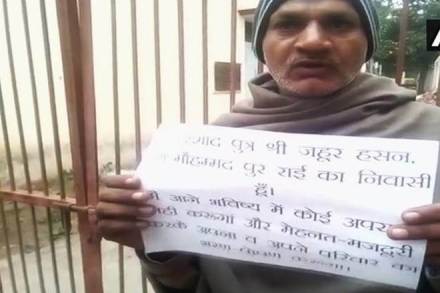 पुत्र श्री जहूर हसन,
मौहम्मद पुर राई का निवासी
हूँ।
आगे भविष्य में कोई
नही करूंगा और मेहनत-मजदूरी
करके अपना व अपने परिवार का
भरण-पोषण करूंगा।
A